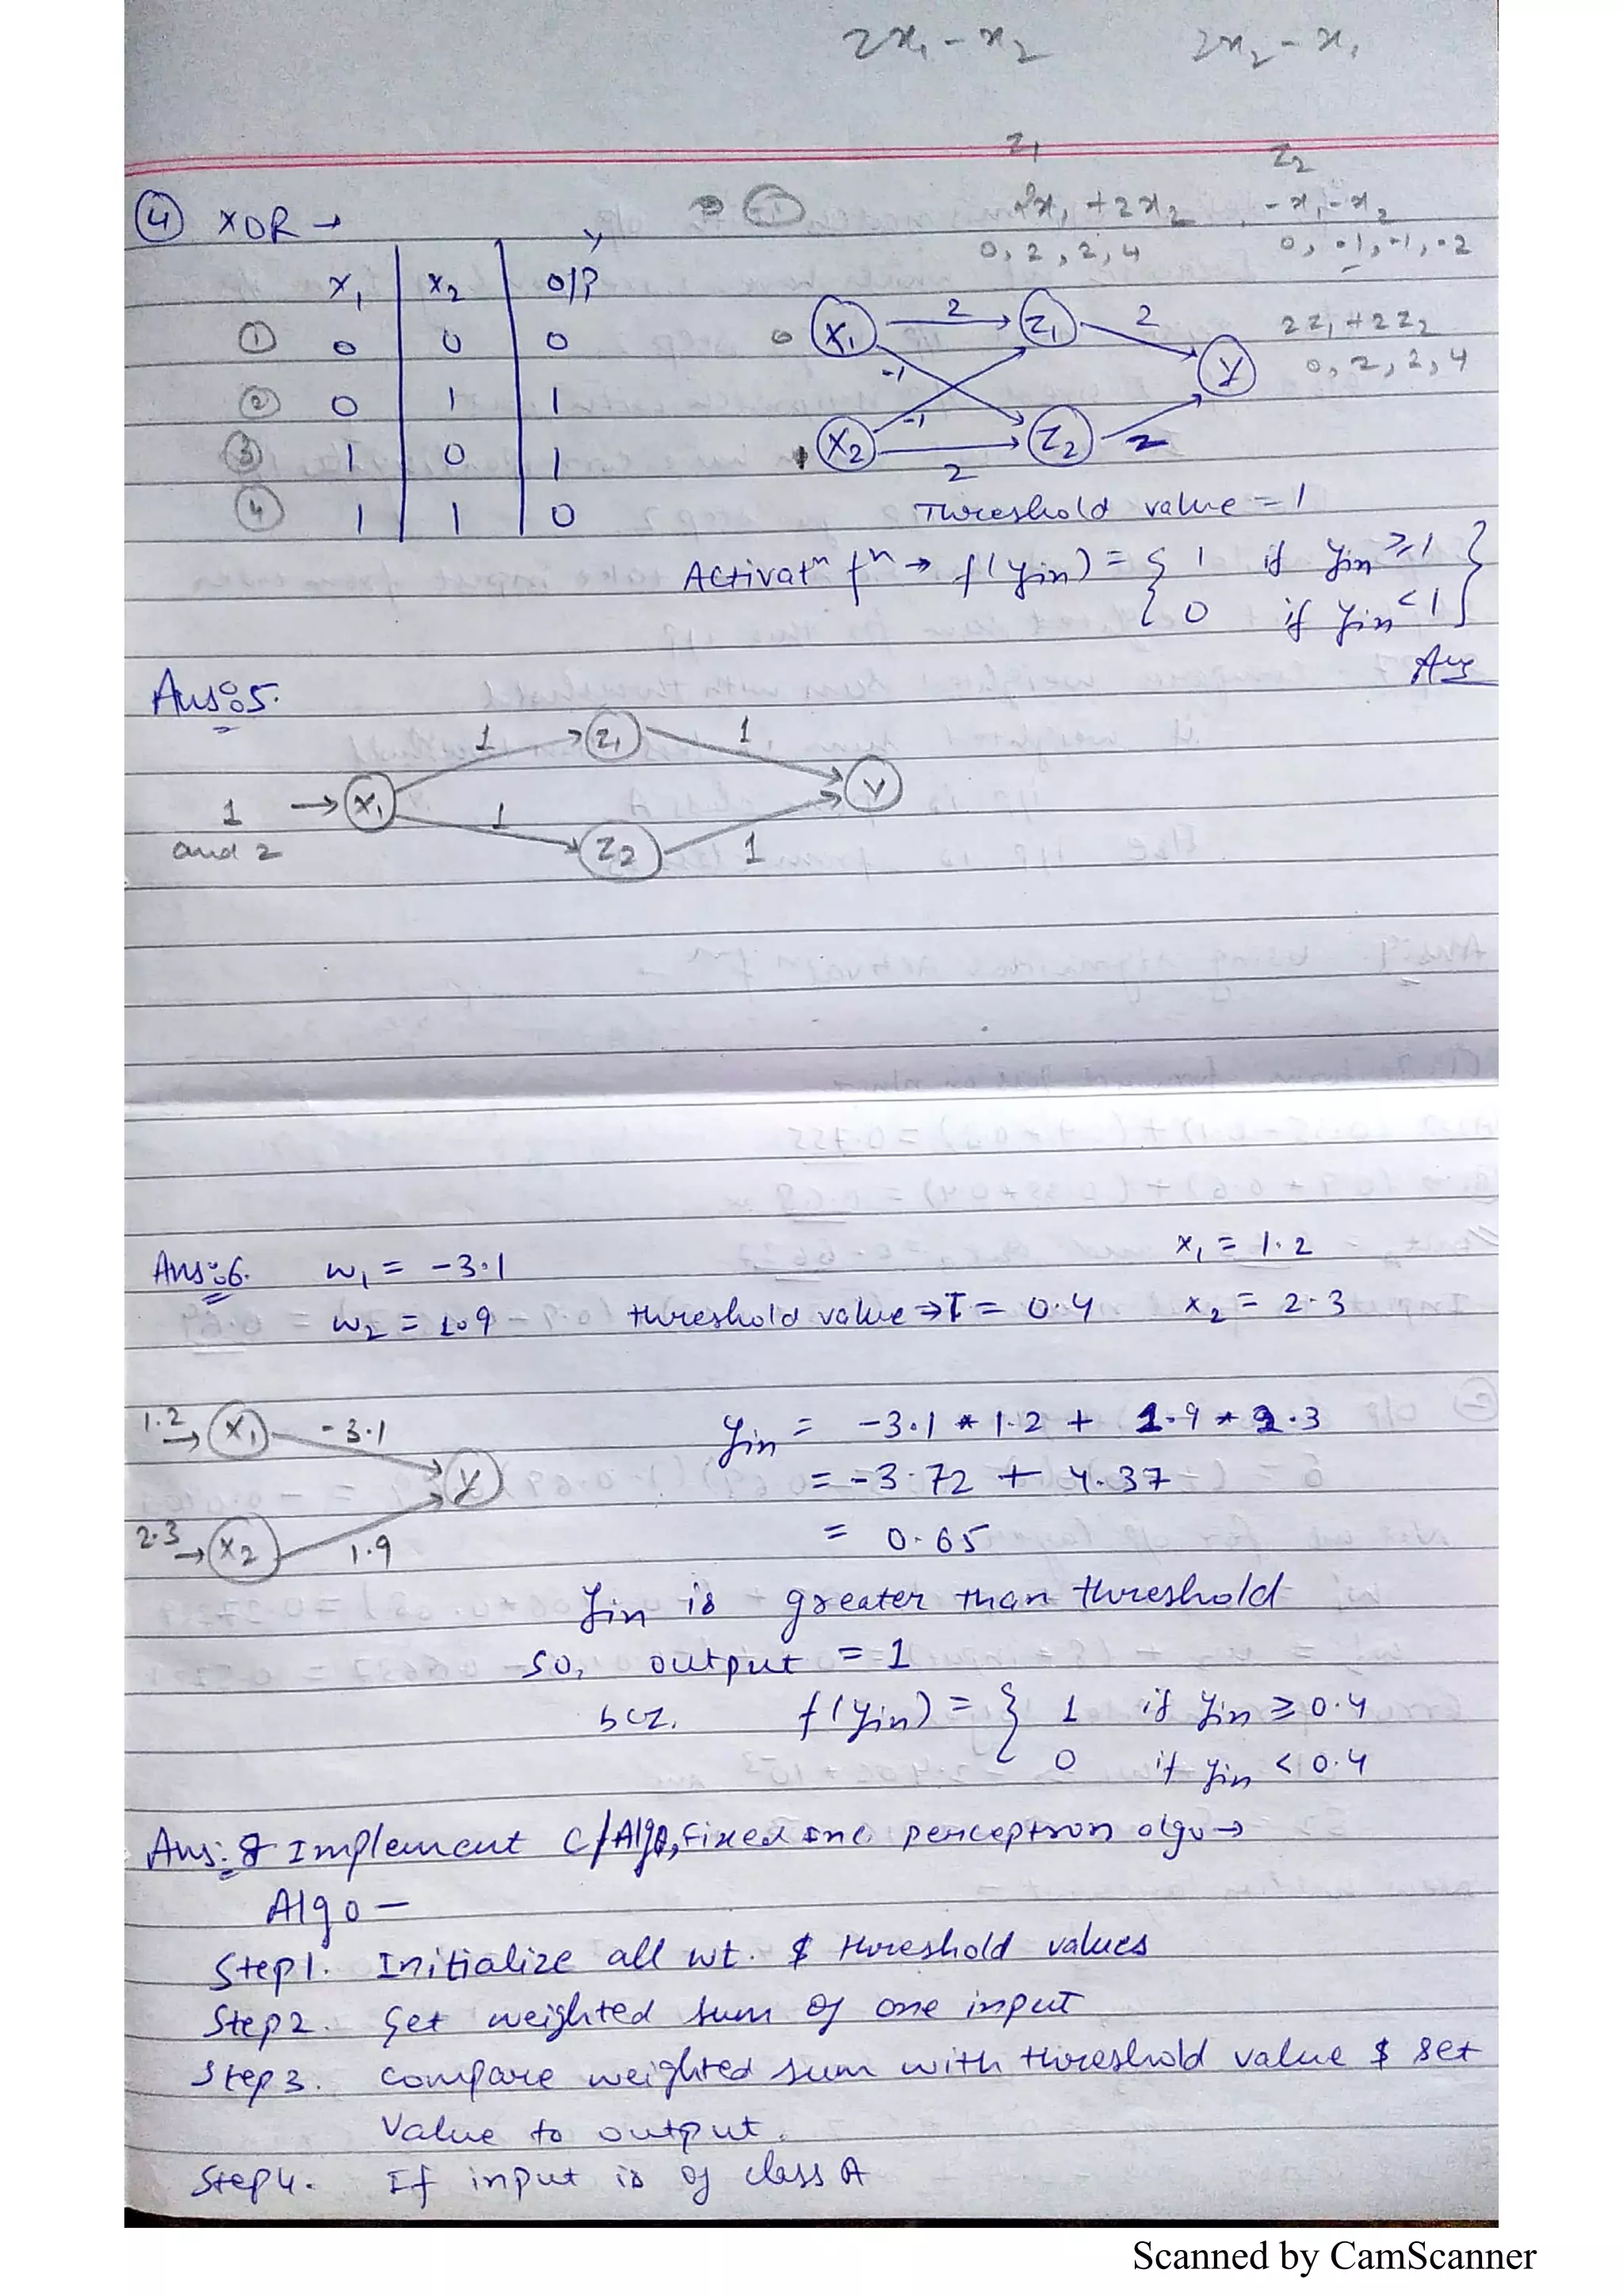 2x₁ - x₂ 2x₂ - x₁
z₁ z₂
④ XOR → ① 2x₁ + 2x₂ -x₁-x₂
0, 2, 2, 4 0, -1, -1, -2
x₁ x₂ y O/P
① 0 0 0
② 0 1 1
③ 1 0 1
④ 1 1 0
0 X₁ 2 Z₁ 2 2z₁ + 2z₂
-1 Y 0, 2, 2, 4
X₂ -1 Z₂ 2
2
Threshold value = 1
Activatⁿ fⁿ → f(yin) = { 1 if yin ≥ 1 }
{ 0 if yin < 1 }
Ans
Ans:5.
1 Z₁ 1
1 → X₁ Y
and 2 1 Z₂ 1
Ans:6. w₁ = -3.1 x₁ = 1.2
w₂ = 1.9 threshold value ⇒ T = 0.4 x₂ = 2.3
1.2 → X₁ -3.1 yin = -3.1 * 1.2 + 1.9 * 2.3
Y = -3.72 + 4.37
2.3 → X₂ 1.9 = 0.65
yin is greater than threshold
so, output = 1
bcz. f(yin) = { 1 if yin ≥ 0.4
0 if yin < 0.4
Ans:8 Implement C/Algo, Fixed Inc. perceptron algo →
Algo -
Step1. Initialize all wt. & threshold values
Step2. Get weighted sum of one input
Step3. compare weighted sum with threshold value & set
value to output.
Step4. If input is of class A
Scanned by CamScanner